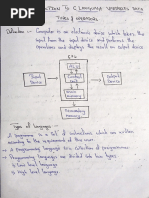 TION TO C LANGUAGE VARIABLES DATA
TYPES & OPERATORS
Definition :- Computer is an electronic device which takes the
input from the input device and performs the
operations and displays the result on output device
CPU
Input
Device
ALU
Output
Device
Types of Languages :-
A programme is a set of instructions which are written
according to the requirement of the user.
Programming language is a collection of programmes.
Programming languages are divided into two types
Low level language
High level language.